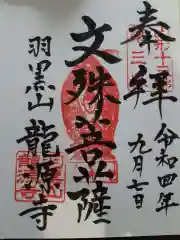 奉拝
令和四年
九月七日
文殊菩薩
羽黒山
龍原寺